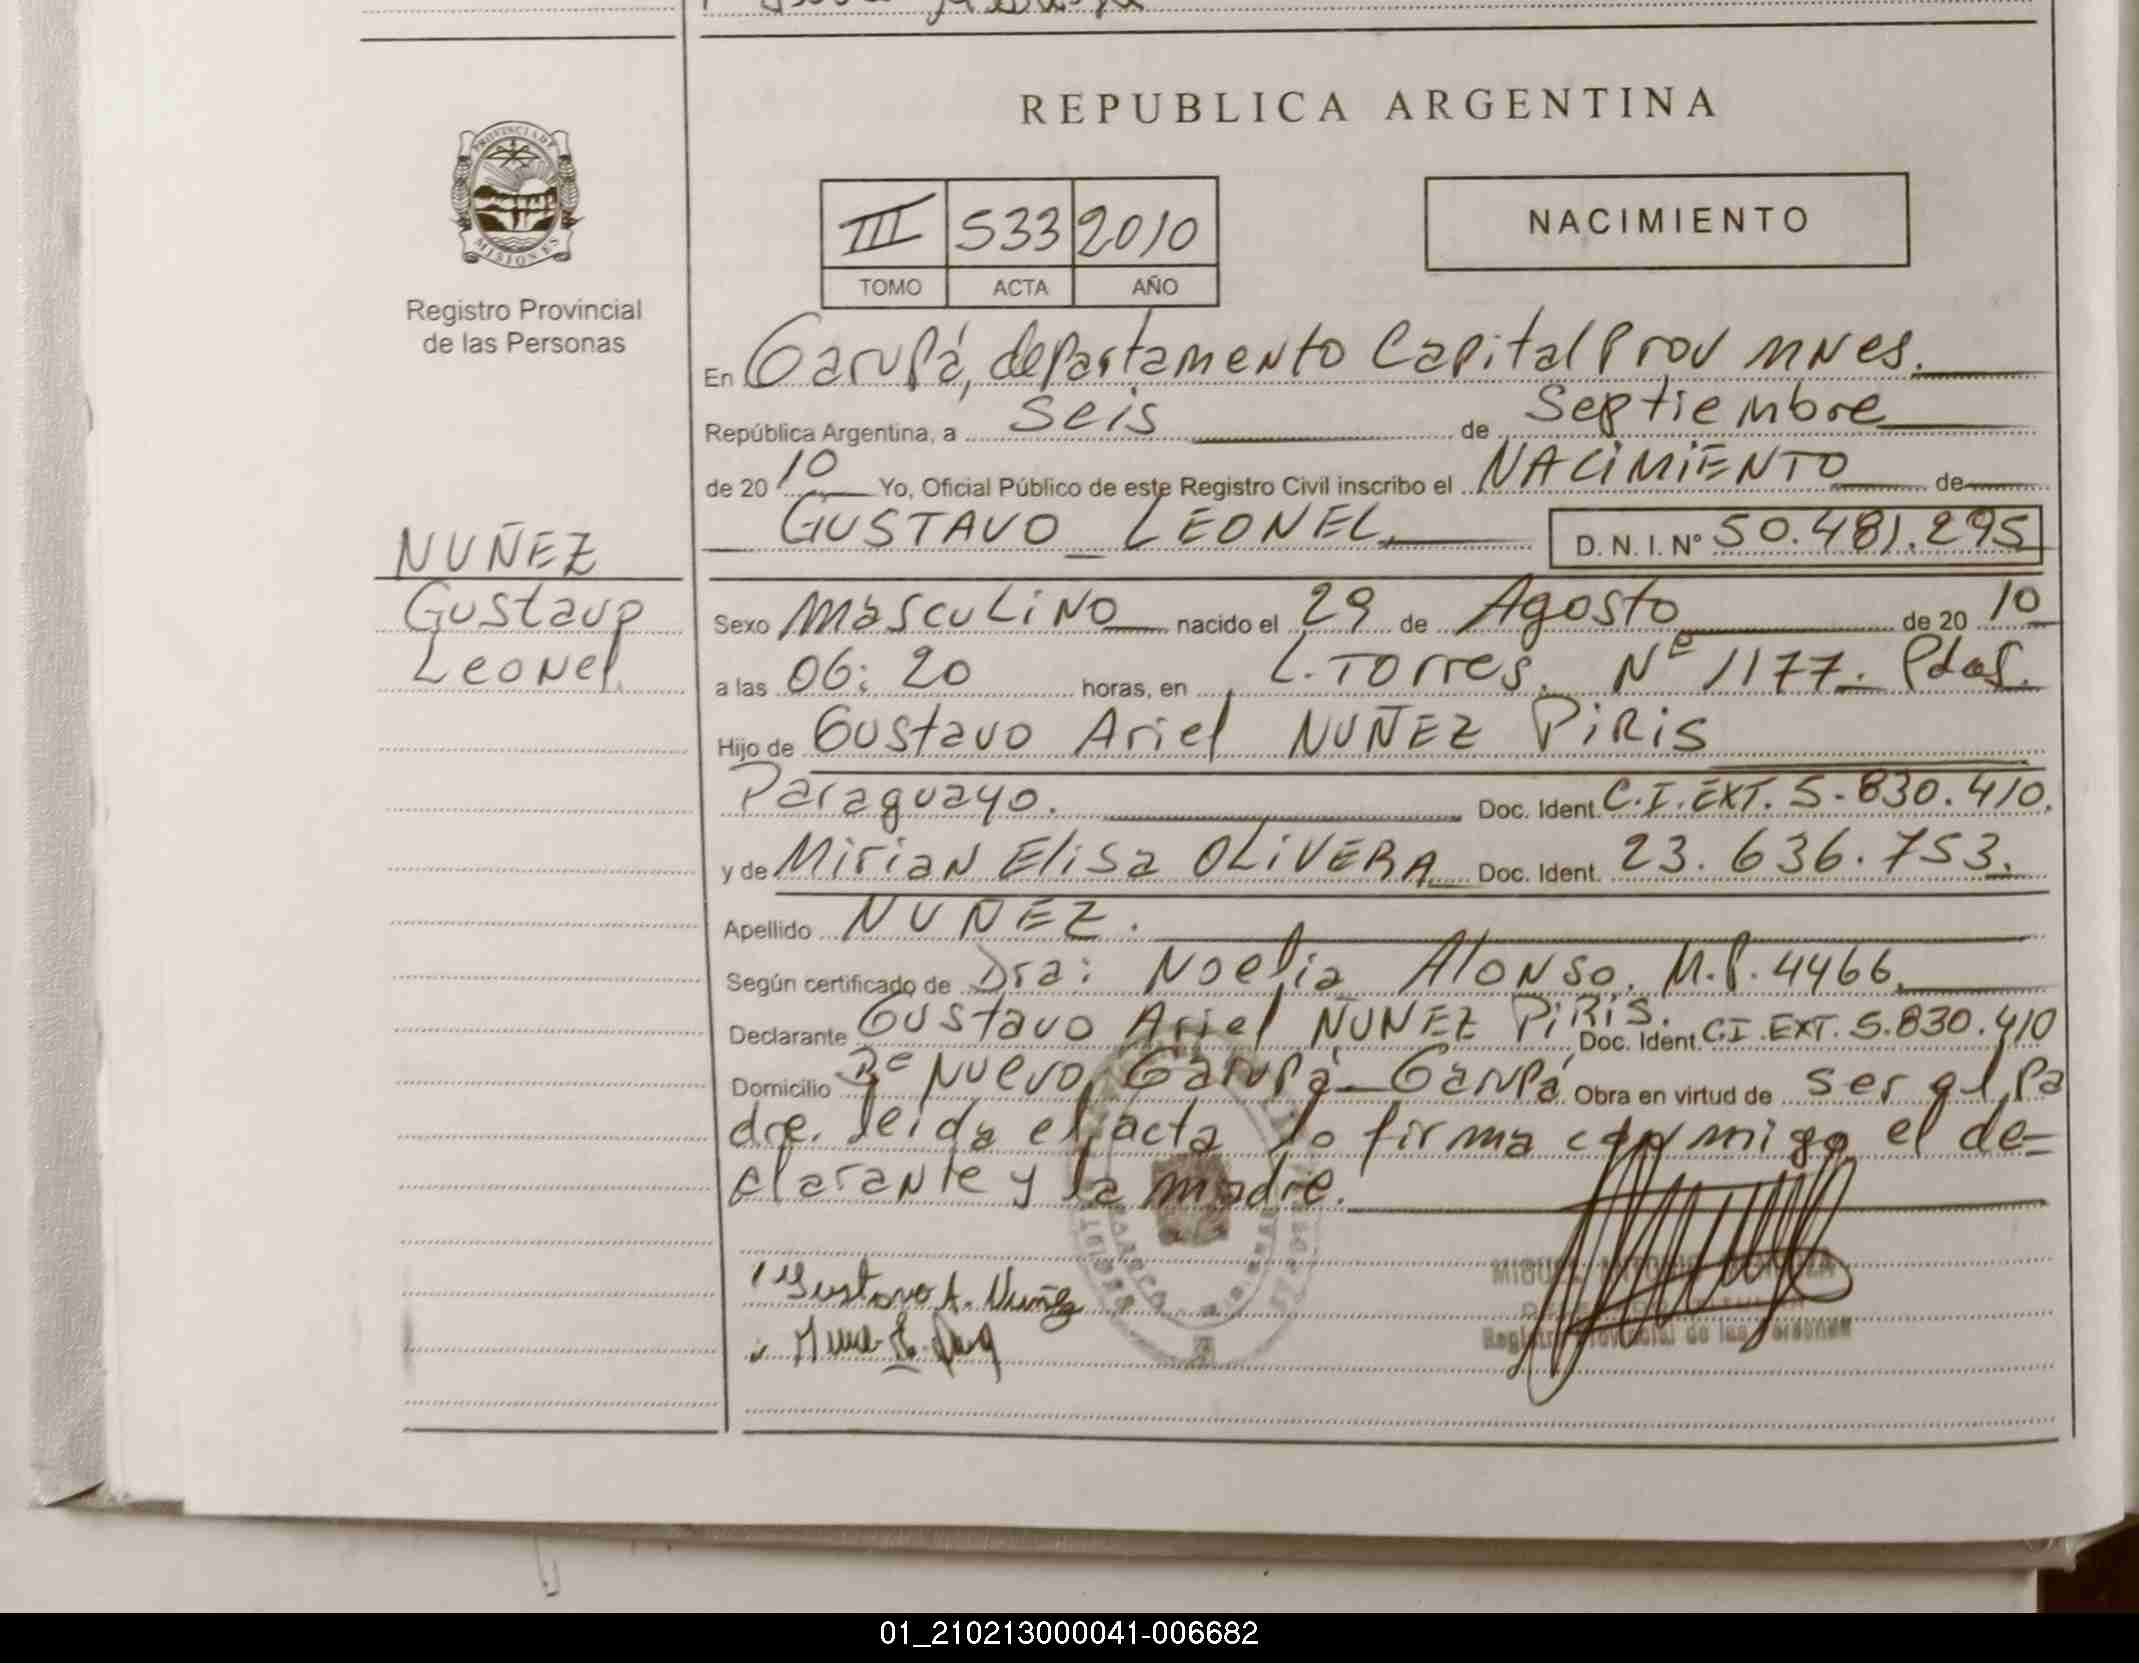 REPUBLICA ARGENTINA
PROVINCIA DE
MISIONES
Registro Provincial
de las Personas
III 533 2010
TOMO ACTA AÑO
NACIMIENTO
En Garupá, departamento Capital Prov mnes.
República Argentina, a seis de Septiembre
de 2010 Yo, Oficial Público de este Registro Civil inscribo el NACIMIENTO de
GUSTAVO LEONEL D. N. I. Nº 50.481.295
NUÑEZ
Gustavo
Leonel
Sexo masculino nacido el 29 de Agosto de 2010
a las 06:20 horas, en L. Torres. Nº 1177. Pdas.
Hijo de Gustavo Ariel NUÑEZ PiRis
Paraguayo. Doc. Ident. C.I.EXT. 5.830.410.
y de Mirian Elisa OLiVERA Doc. Ident. 23.636.753.
Apellido NUÑEZ.
Según certificado de Dra: Noelia Alonso. M.P. 4466.
Declarante Gustavo Ariel NUÑEZ PiRis. Doc. Ident. C.I.EXT. 5.830.410
Domicilio Bº Nuevo Garupá-Garupá Obra en virtud de ser el pa
dre. leida el acta lo firma conmigo el de=
clarante y la madre.
Gustavo A. Nuñez
Registro Provincial de las Personas
01_210213000041-006682